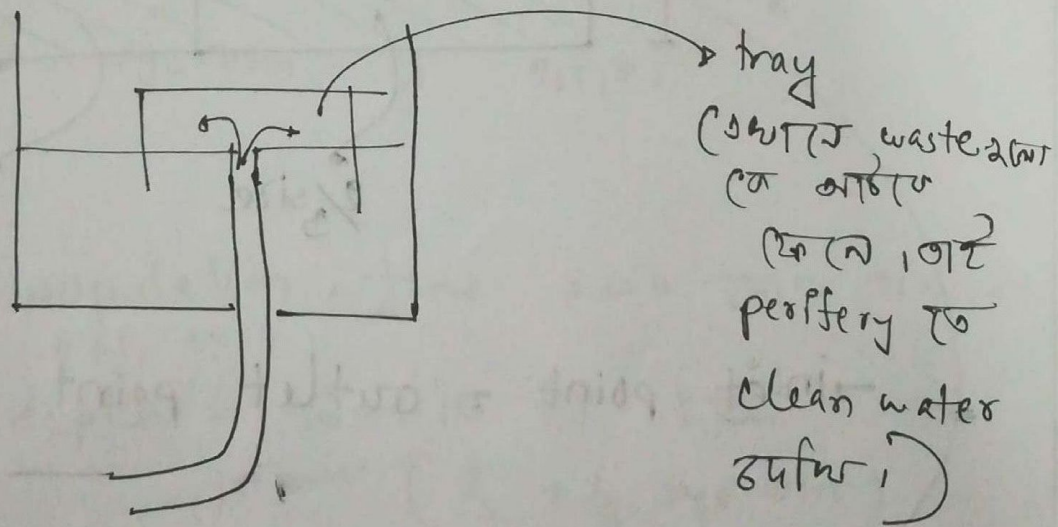 tray
(এখানে waste গুলো
কে আটকে
ফেলে, তাই
periffery তে
clean water